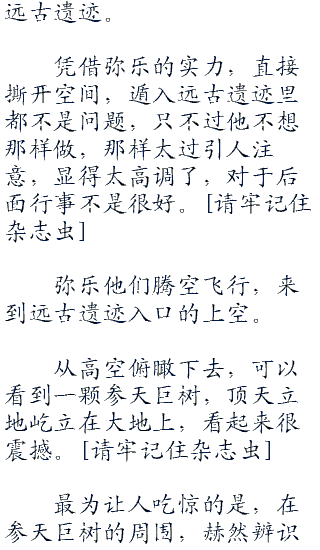 远古遗迹。
凭借弥乐的实力，直接
撕开空间，遁入远古遗迹里
都不是问题，只不过他不想
那样做，那样太过引人注
意，显得太高调了，对于后
面行事不是很好。[请牢记住
杂志虫]
弥乐他们腾空飞行，来
到远古遗迹入口的上空。
从高空俯瞰下去，可以
看到一颗参天巨树，顶天立
地屹立在大地上，看起来很
震撼。[请牢记住杂志虫]
最为让人吃惊的是，在
参天巨树的周围，赫然辨识